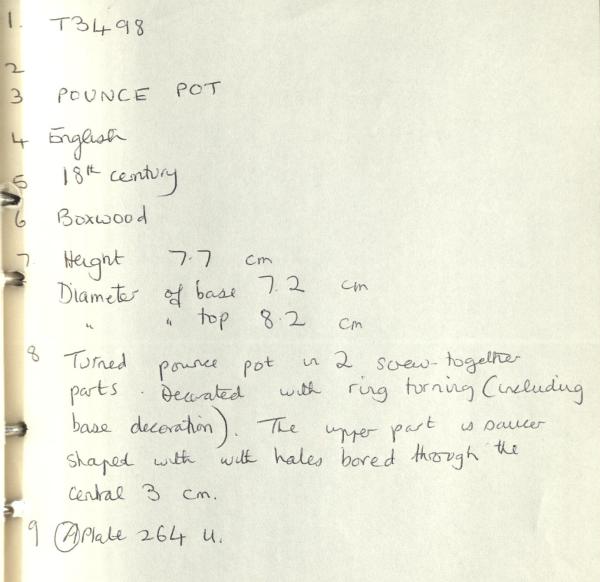 1. T3498
2
3 POUNCE POT
4 English
5 18th century
6 Boxwood
7. Height 7.7 cm
Diameter of base 7.2 cm
" " top 8.2 cm
8 Turned pounce pot in 2 screw-together
parts. Decorated with ring turning (including
base decoration). The upper part is saucer
shaped with with holes bored through the
central 3 cm.
9 (A) Plate 264 U.